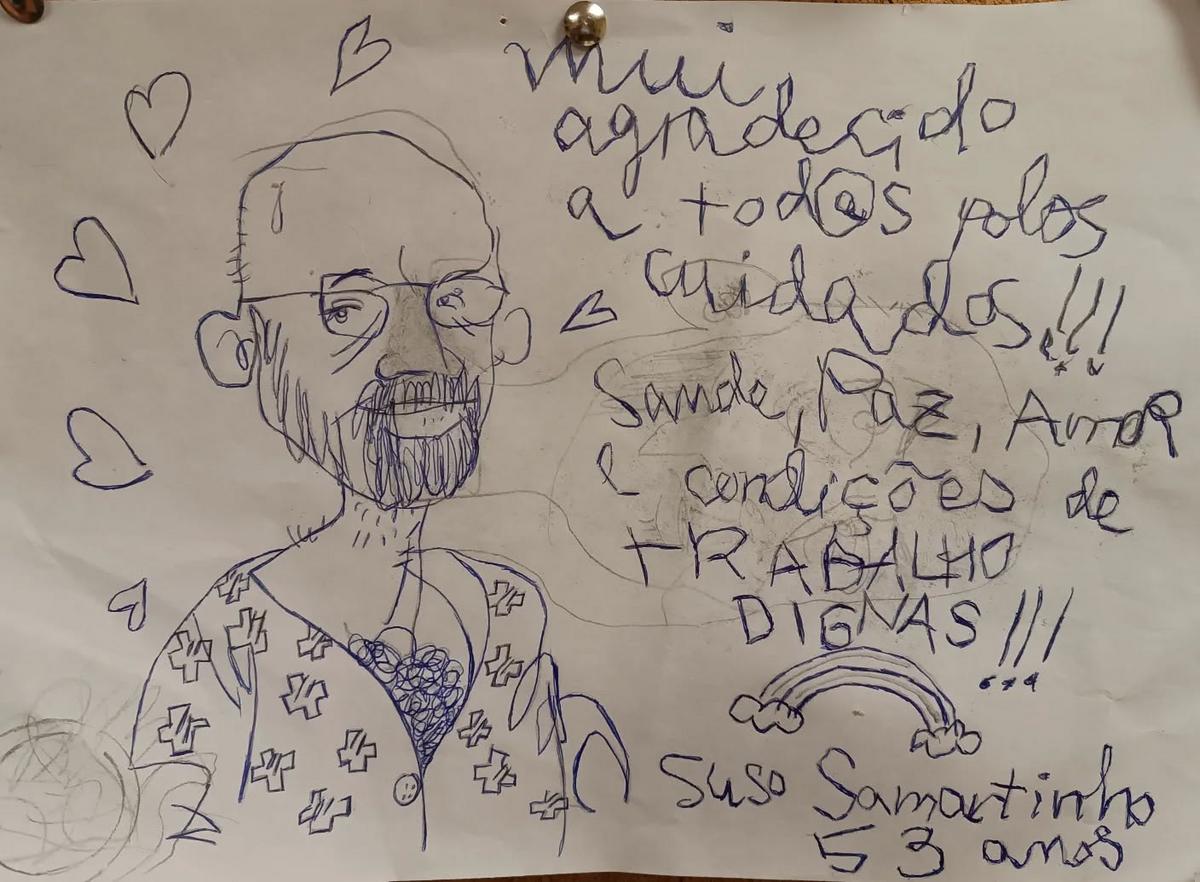 mui
agradecido
a tod@s polos
cuidados!!!
Saude, Paz, Amor
e condições de
TRABALHO
DIGNAS!!!
Suso Samartinho
53 anos